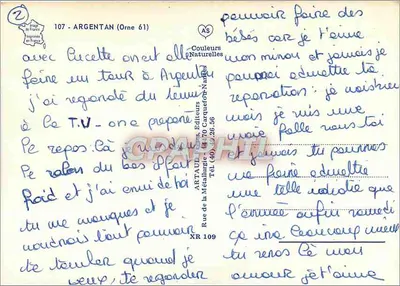 2
107 - ARGENTAN (Orne 61)
avec Lucette on est allé
faire un tour à Argentan
j'ai regardé du tennis
à la T.V - on a preparé
le repos. Là
Le salon du bas il fait
froid et j'ai envi de toi
tu me manques et je
voudrais tant pouvoir
te tomber quand je
veux, te regarder
AS
Couleurs
Naturelles
ARTAUD Editeurs
Rue de la Métallurgie - 44470 Carquefou-Nantes
XR 109
pouvoir faire des
bébés car je t'aime
mon minou et jamais je
pourrai admettre ta
reparation : je
mais je suis une
folle sans toi
et jamais tu pourras
me faire admettre
une telle idiotie que
l'armée enfin samedi
ça ira beaucoup mieux
tu seras là mon
amour je t'aime